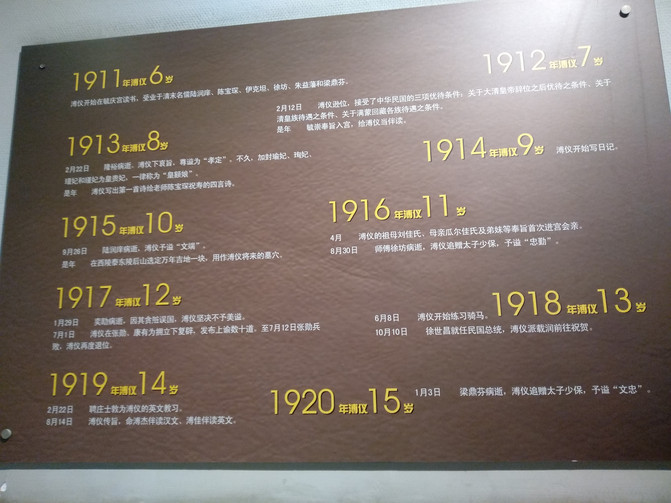 1911年溥仪6岁
溥仪开始在毓庆宫读书，受业于清末名儒陆润庠、陈宝琛、伊克坦、徐坊、朱益藩和梁鼎芬。
1912年溥仪7岁
2月12日 溥仪逊位，接受了中华民国的三项优待条件：关于大清皇帝辞位之后优待之条件、关于
清皇族待遇之条件、关于满蒙回藏各族待遇之条件。
是年 毓崇奉旨入宫，给溥仪当伴读。
1913年溥仪8岁
2月22日 隆裕病逝，溥仪下哀旨，尊谥为“孝定”。不久，加封瑜妃、珣妃、
瑾妃为皇贵妃，一律称为“皇额娘”。
是年 溥仪写出第一首诗给老师陈宝琛祝寿的四言诗。
1914年溥仪9岁
溥仪开始写日记。
1915年溥仪10岁
9月26日 陆润庠病逝，溥仪予谥“文端”。
是年 在西陵泰东陵后山选定万年吉地一块，用作溥仪将来的墓穴。
1916年溥仪11岁
4月 溥仪的祖母刘佳氏、母亲瓜尔佳氏及弟妹等奉旨首次进宫会亲。
8月30日 师傅徐坊病逝，溥仪追赠太子少保，予谥“忠勤”。
1917年溥仪12岁
1月29日 奕劻病逝，因其贪赃误国，溥仪坚决不予美谥。
7月1日 溥仪在张勋、康有为拥立下复辟，发布上谕数十道，至7月12日张勋兵
败，溥仪再度退位。
1918年溥仪13岁
6月8日 溥仪开始练习骑马。
10月10日 徐世昌就任民国总统，溥仪派载润前往祝贺。
1919年溥仪14岁
2月22日 聘庄士敦为溥仪的英文教习。
8月14日 溥仪传旨，命溥杰伴读汉文、溥佳伴读英文。
1920年溥仪15岁
1月3日 梁鼎芬病逝，溥仪追赠太子少保，予谥“文忠”。